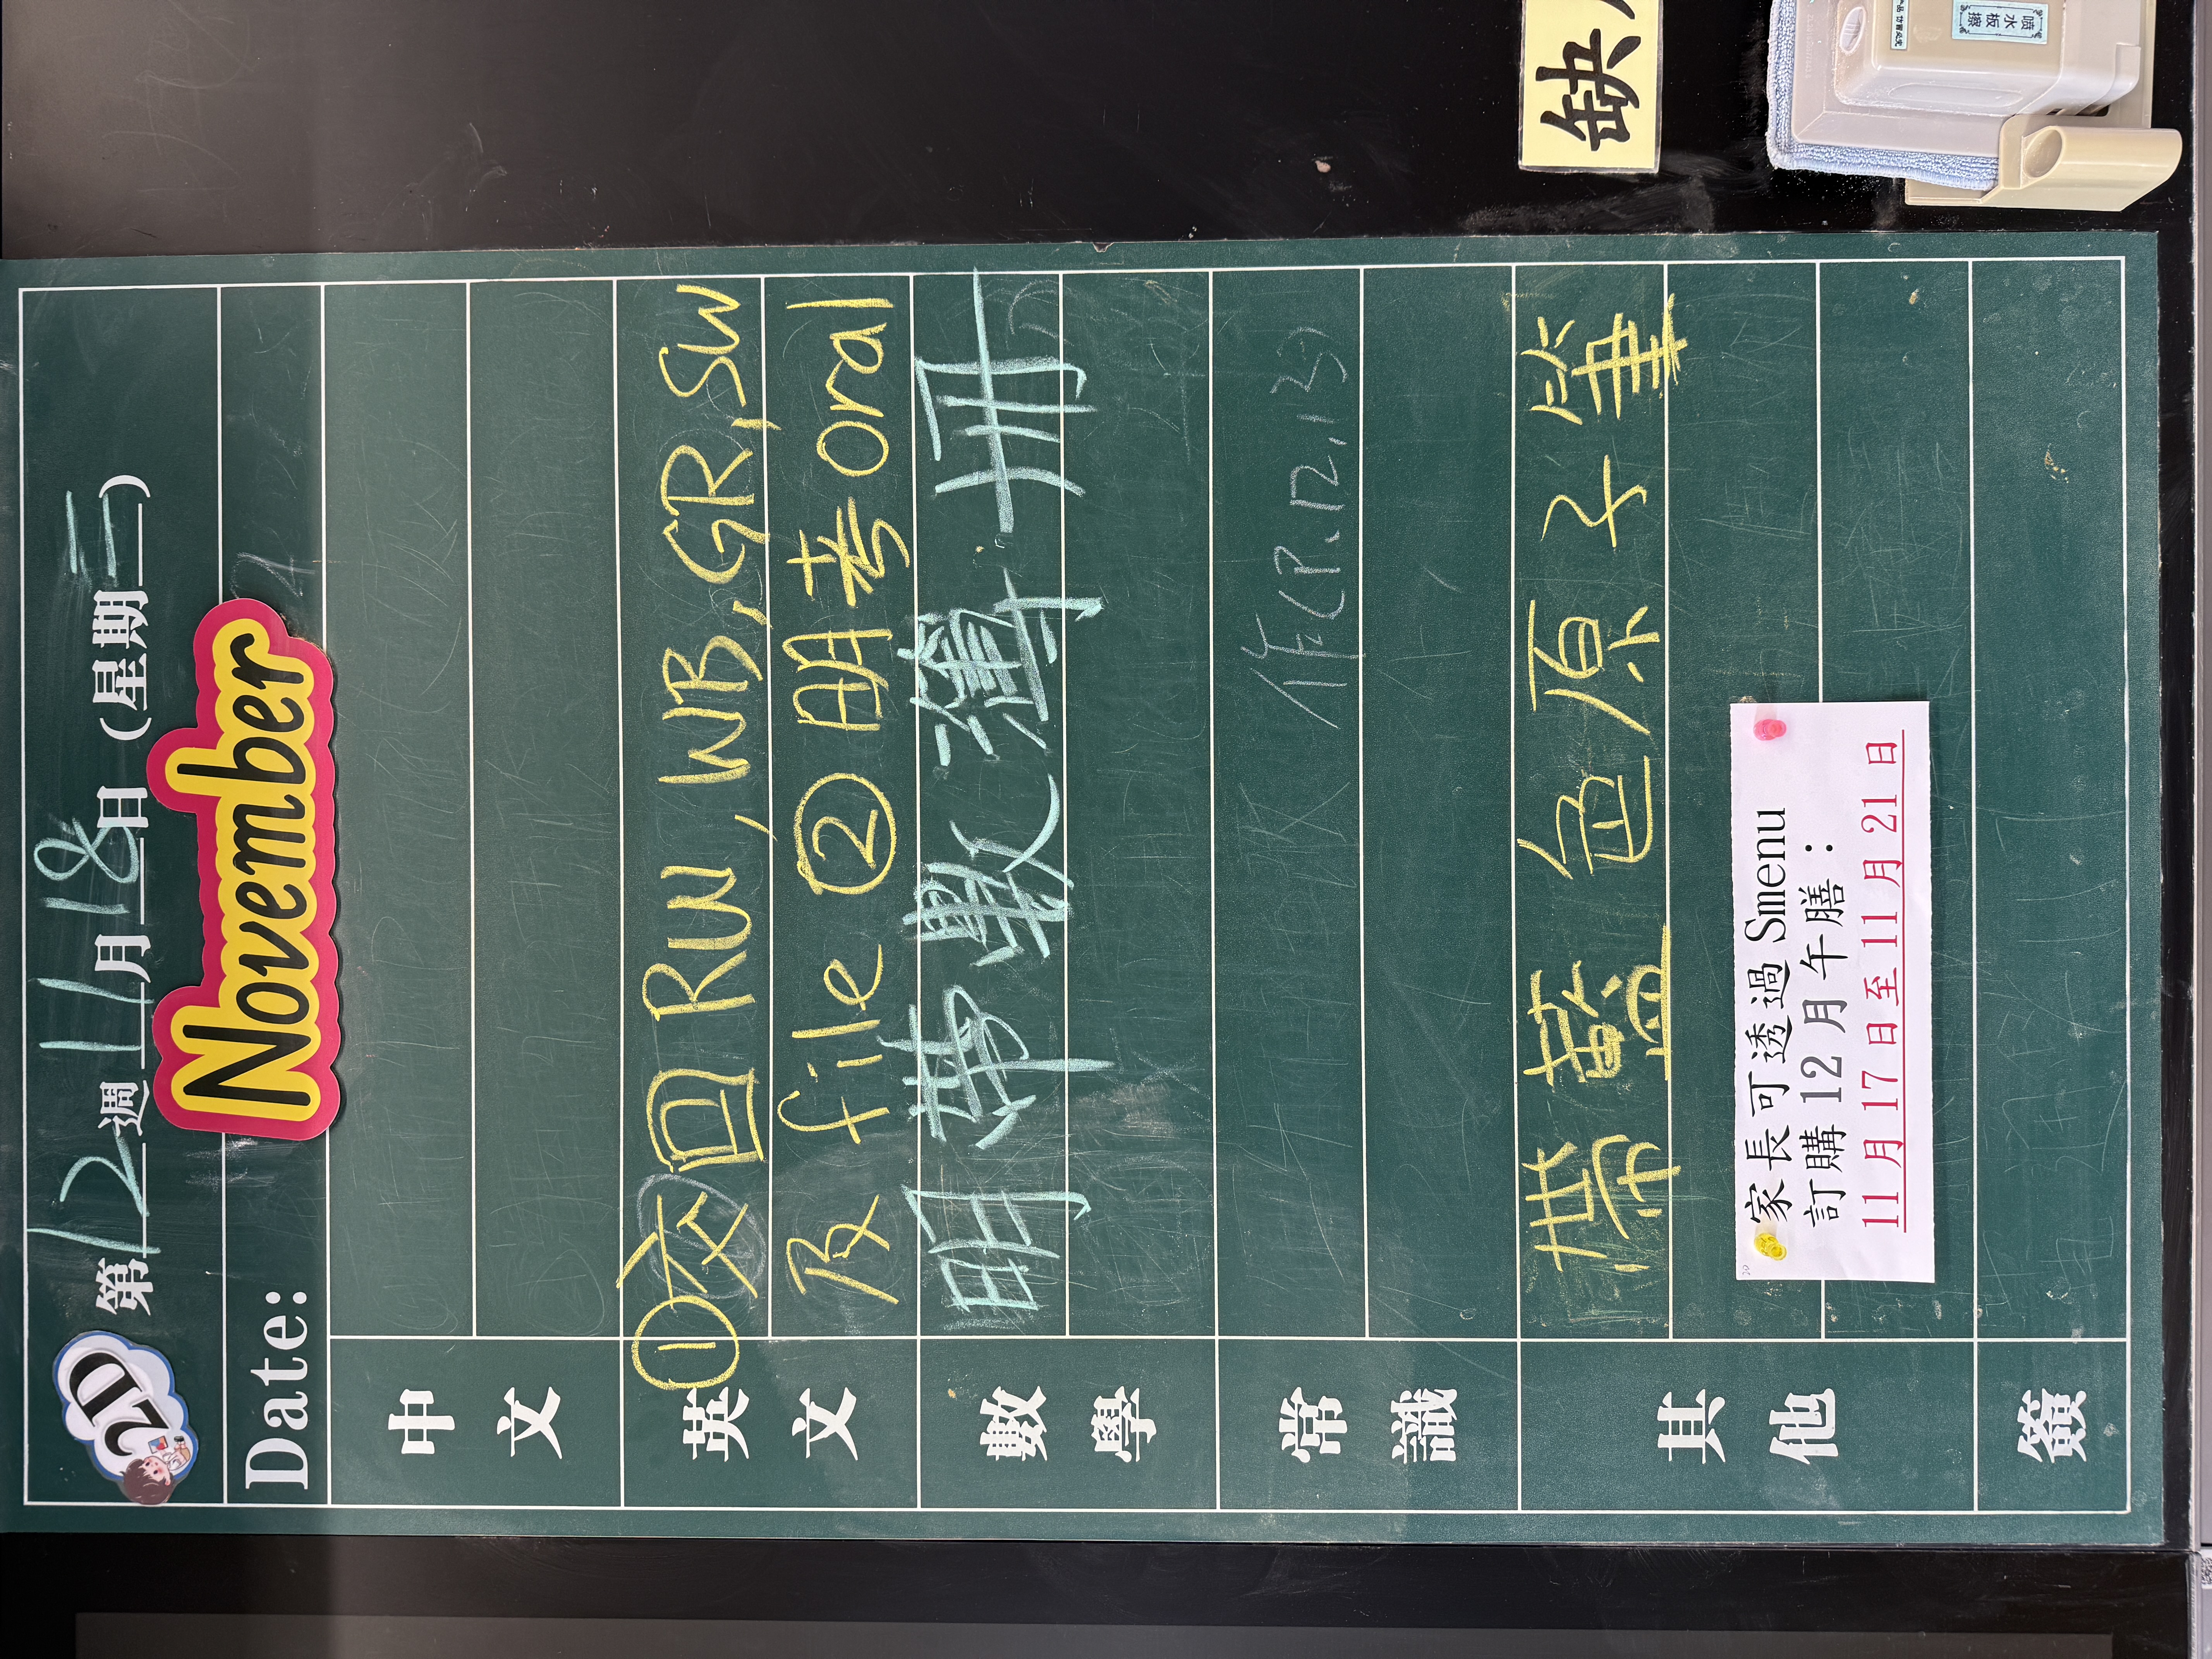 2D
第12週11月18日(星期二)
November
Date:
中文
英文
①交回RW, WB, GR, SW
及file ②明考oral
數學
明帶數簿、冊
常識
作(P.12,13)
其他
帶藍色原子筆
家長可透過 Smenu
訂購 12 月午膳：
11 月 17 日至 11 月 21 日
簽
缺
喷水板擦